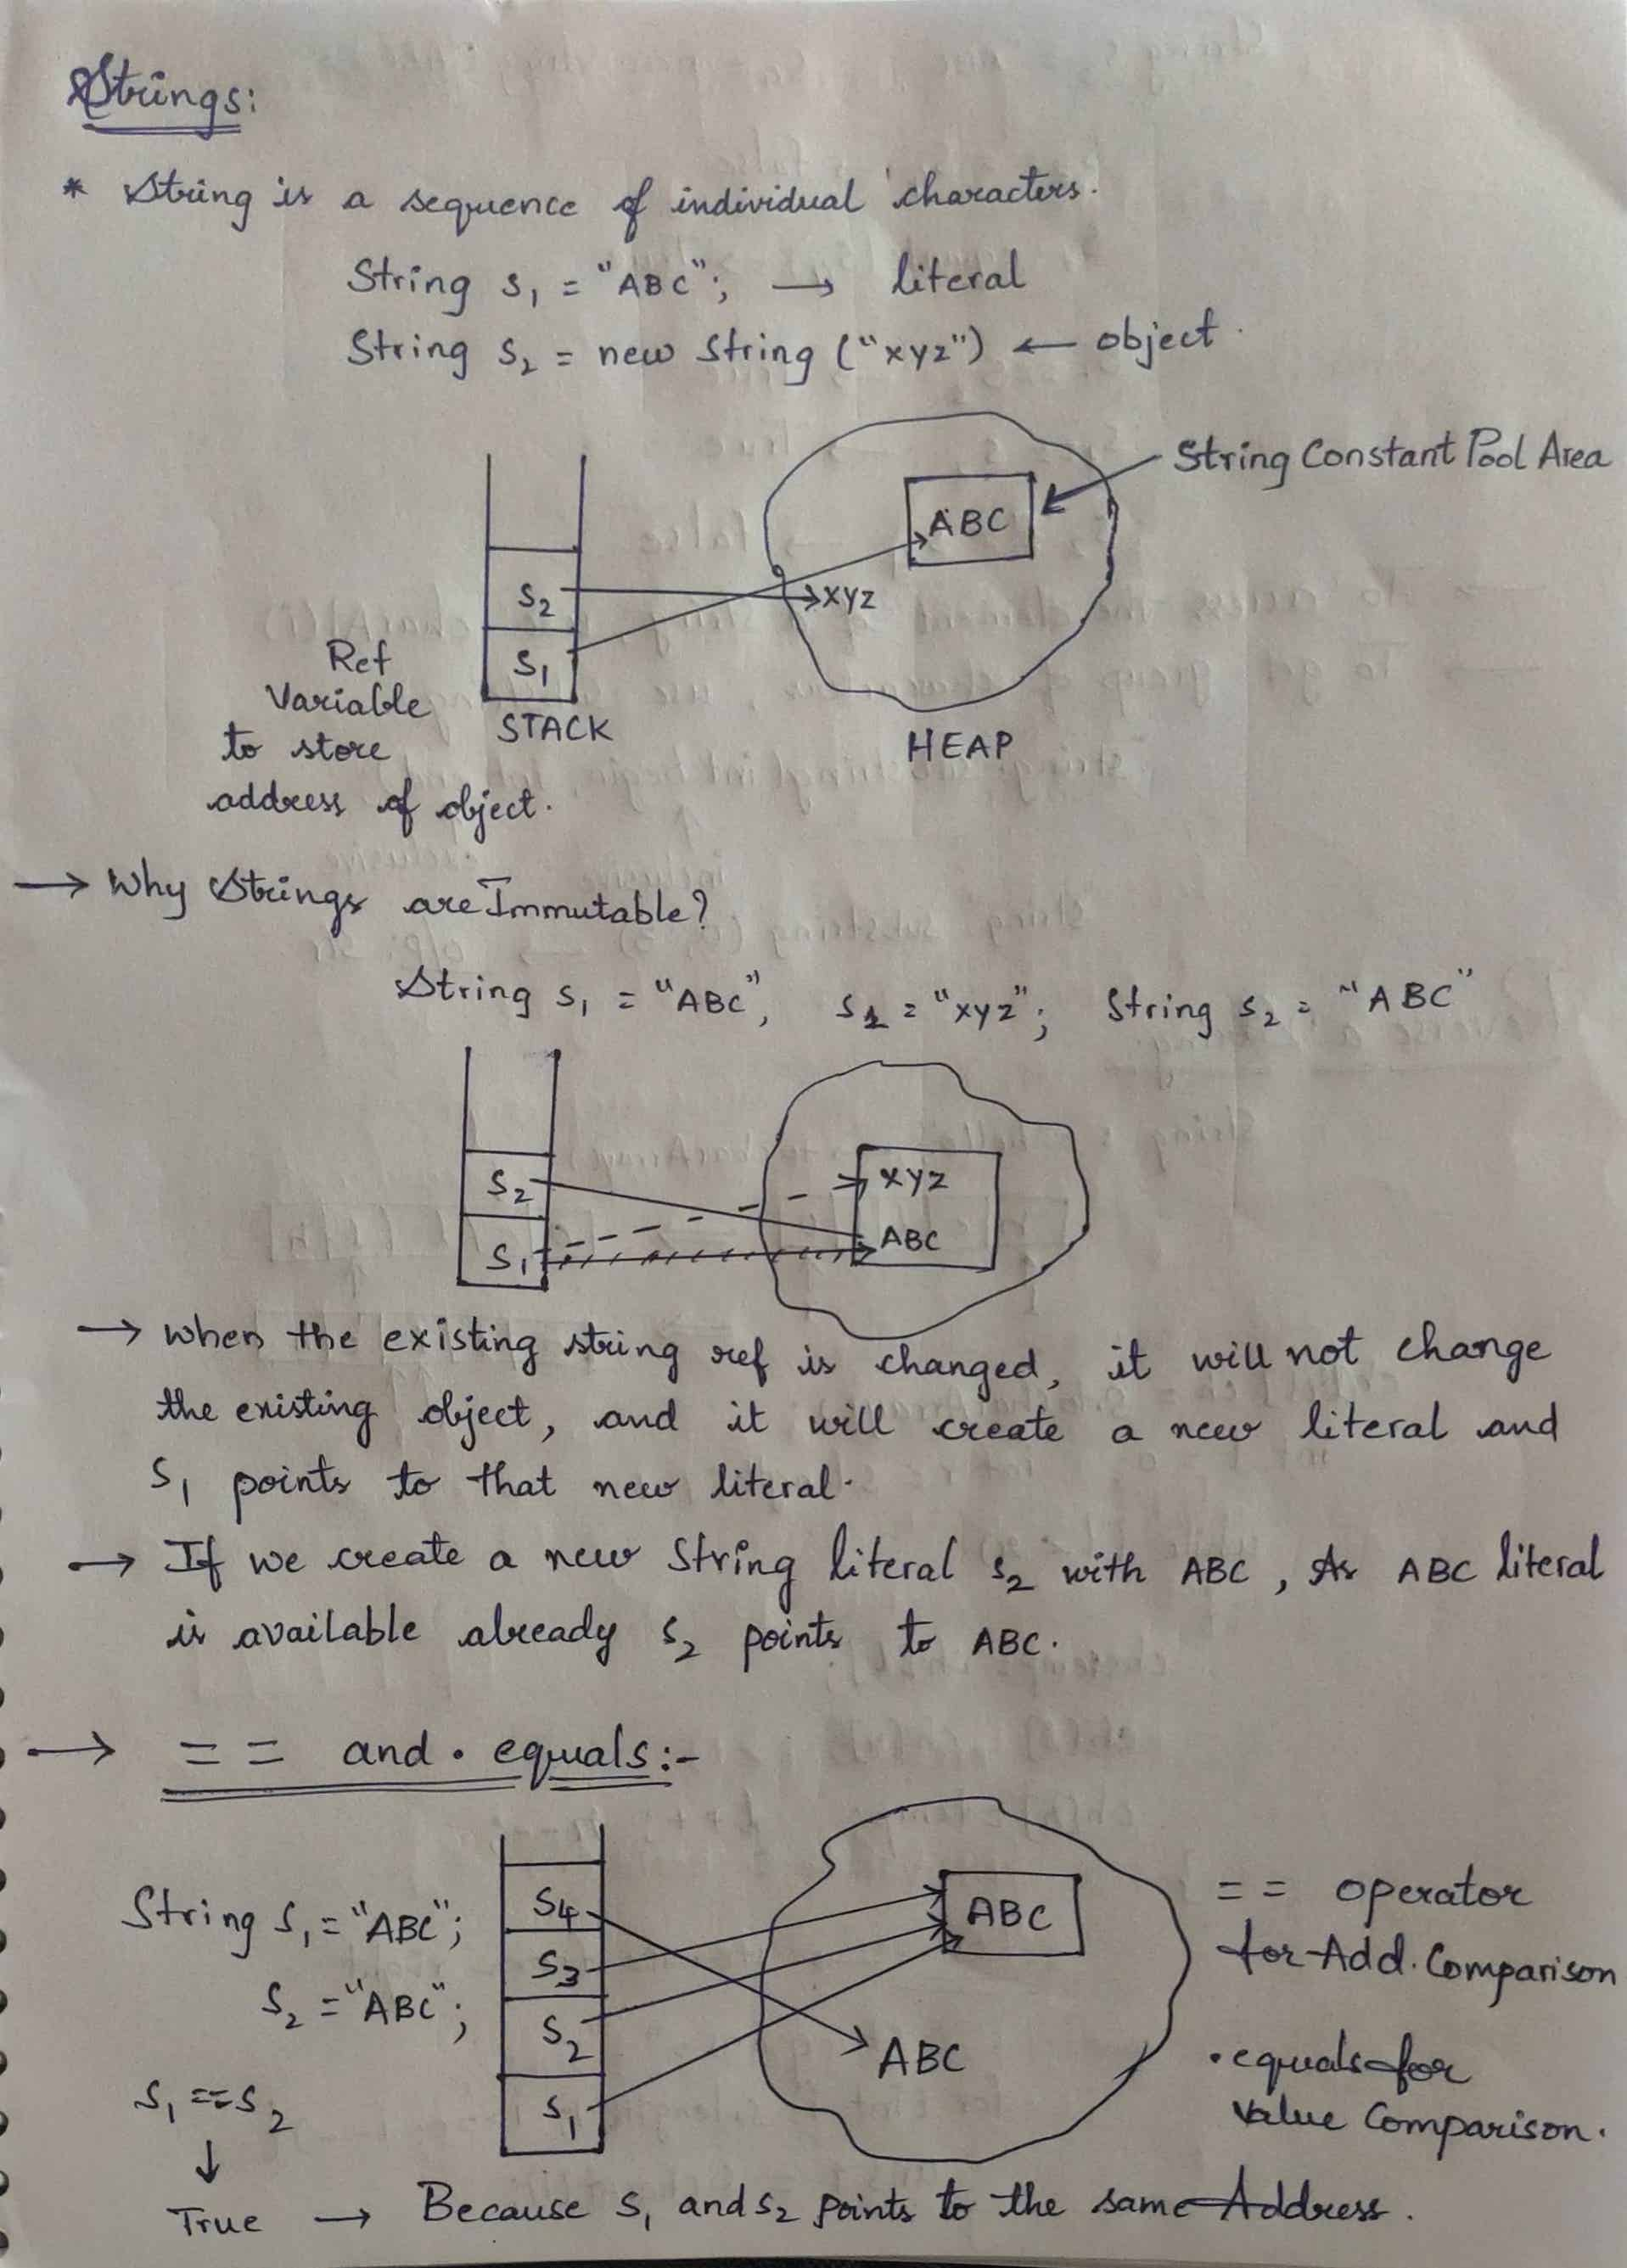 Strings:
* String is a sequence of individual characters.
String s₁ = "ABC"; → literal
String s₂ = new String ("xyz") ← object.
String Constant Pool Area
ABC
s₂
xyz
s₁
Ref
Variable
to store
address of object.
STACK
HEAP
→ Why Strings are Immutable?
String s₁ = "ABC", s₁ = "xyz"; String s₂ = "ABC"
s₂
xyz
s₁
ABC
→ When the existing string ref is changed, it will not change
the existing object, and it will create a new literal and
s₁ points to that new literal.
→ If we create a new String literal s₂ with ABC, As ABC literal
is available already s₂ points to ABC.
→ == and .equals:-
String s₁ = "ABC";
s₂ = "ABC";
s₁ == s₂
↓
True → Because s₁ and s₂ points to the same Address.
s₄
s₃
s₂
s₁
ABC
ABC
== operator
for Add. Comparison
.equals for
Value Comparison.